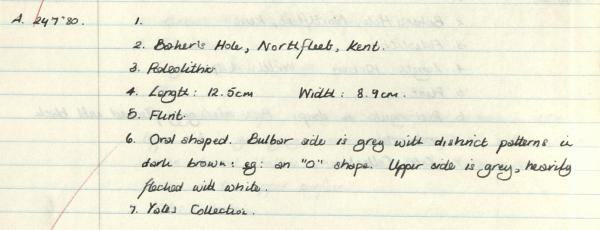 A. 247'80. 1.
2. Baker's Hole, Northfleet, Kent.
3. Paleolithic
4. Length: 12.5cm Width: 8.9cm.
5. Flint
6. Oval shaped. Bulbar side is grey with distinct patterns in
dark brown: eg: an "O" shape. Upper side is grey, heavily
flecked with white.
7. Yates Collection.